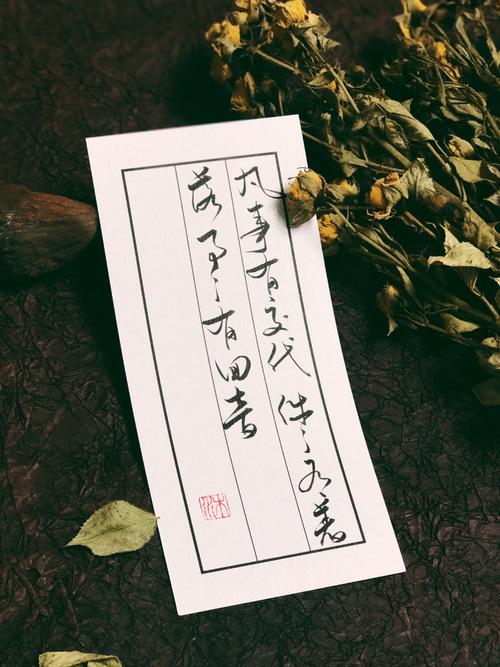 凡事有交代件〻有着
落事〻有回音